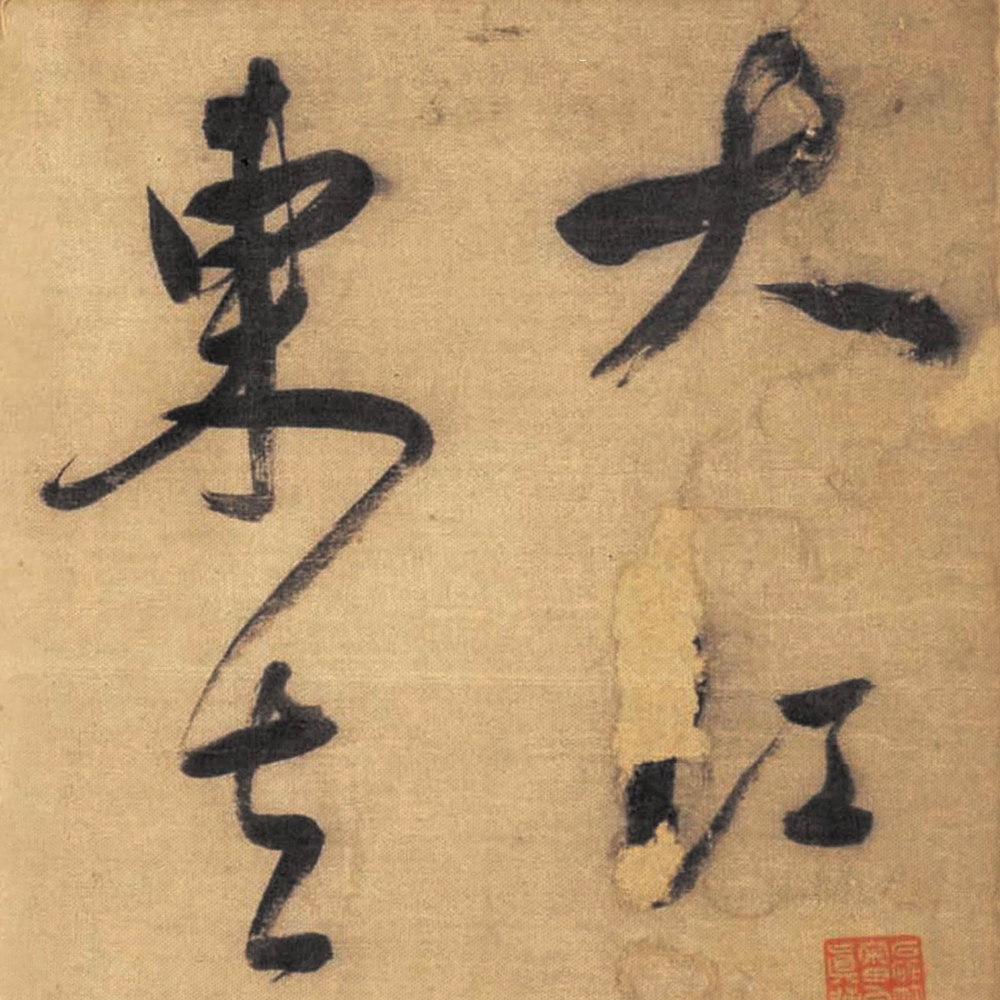 大江
東去